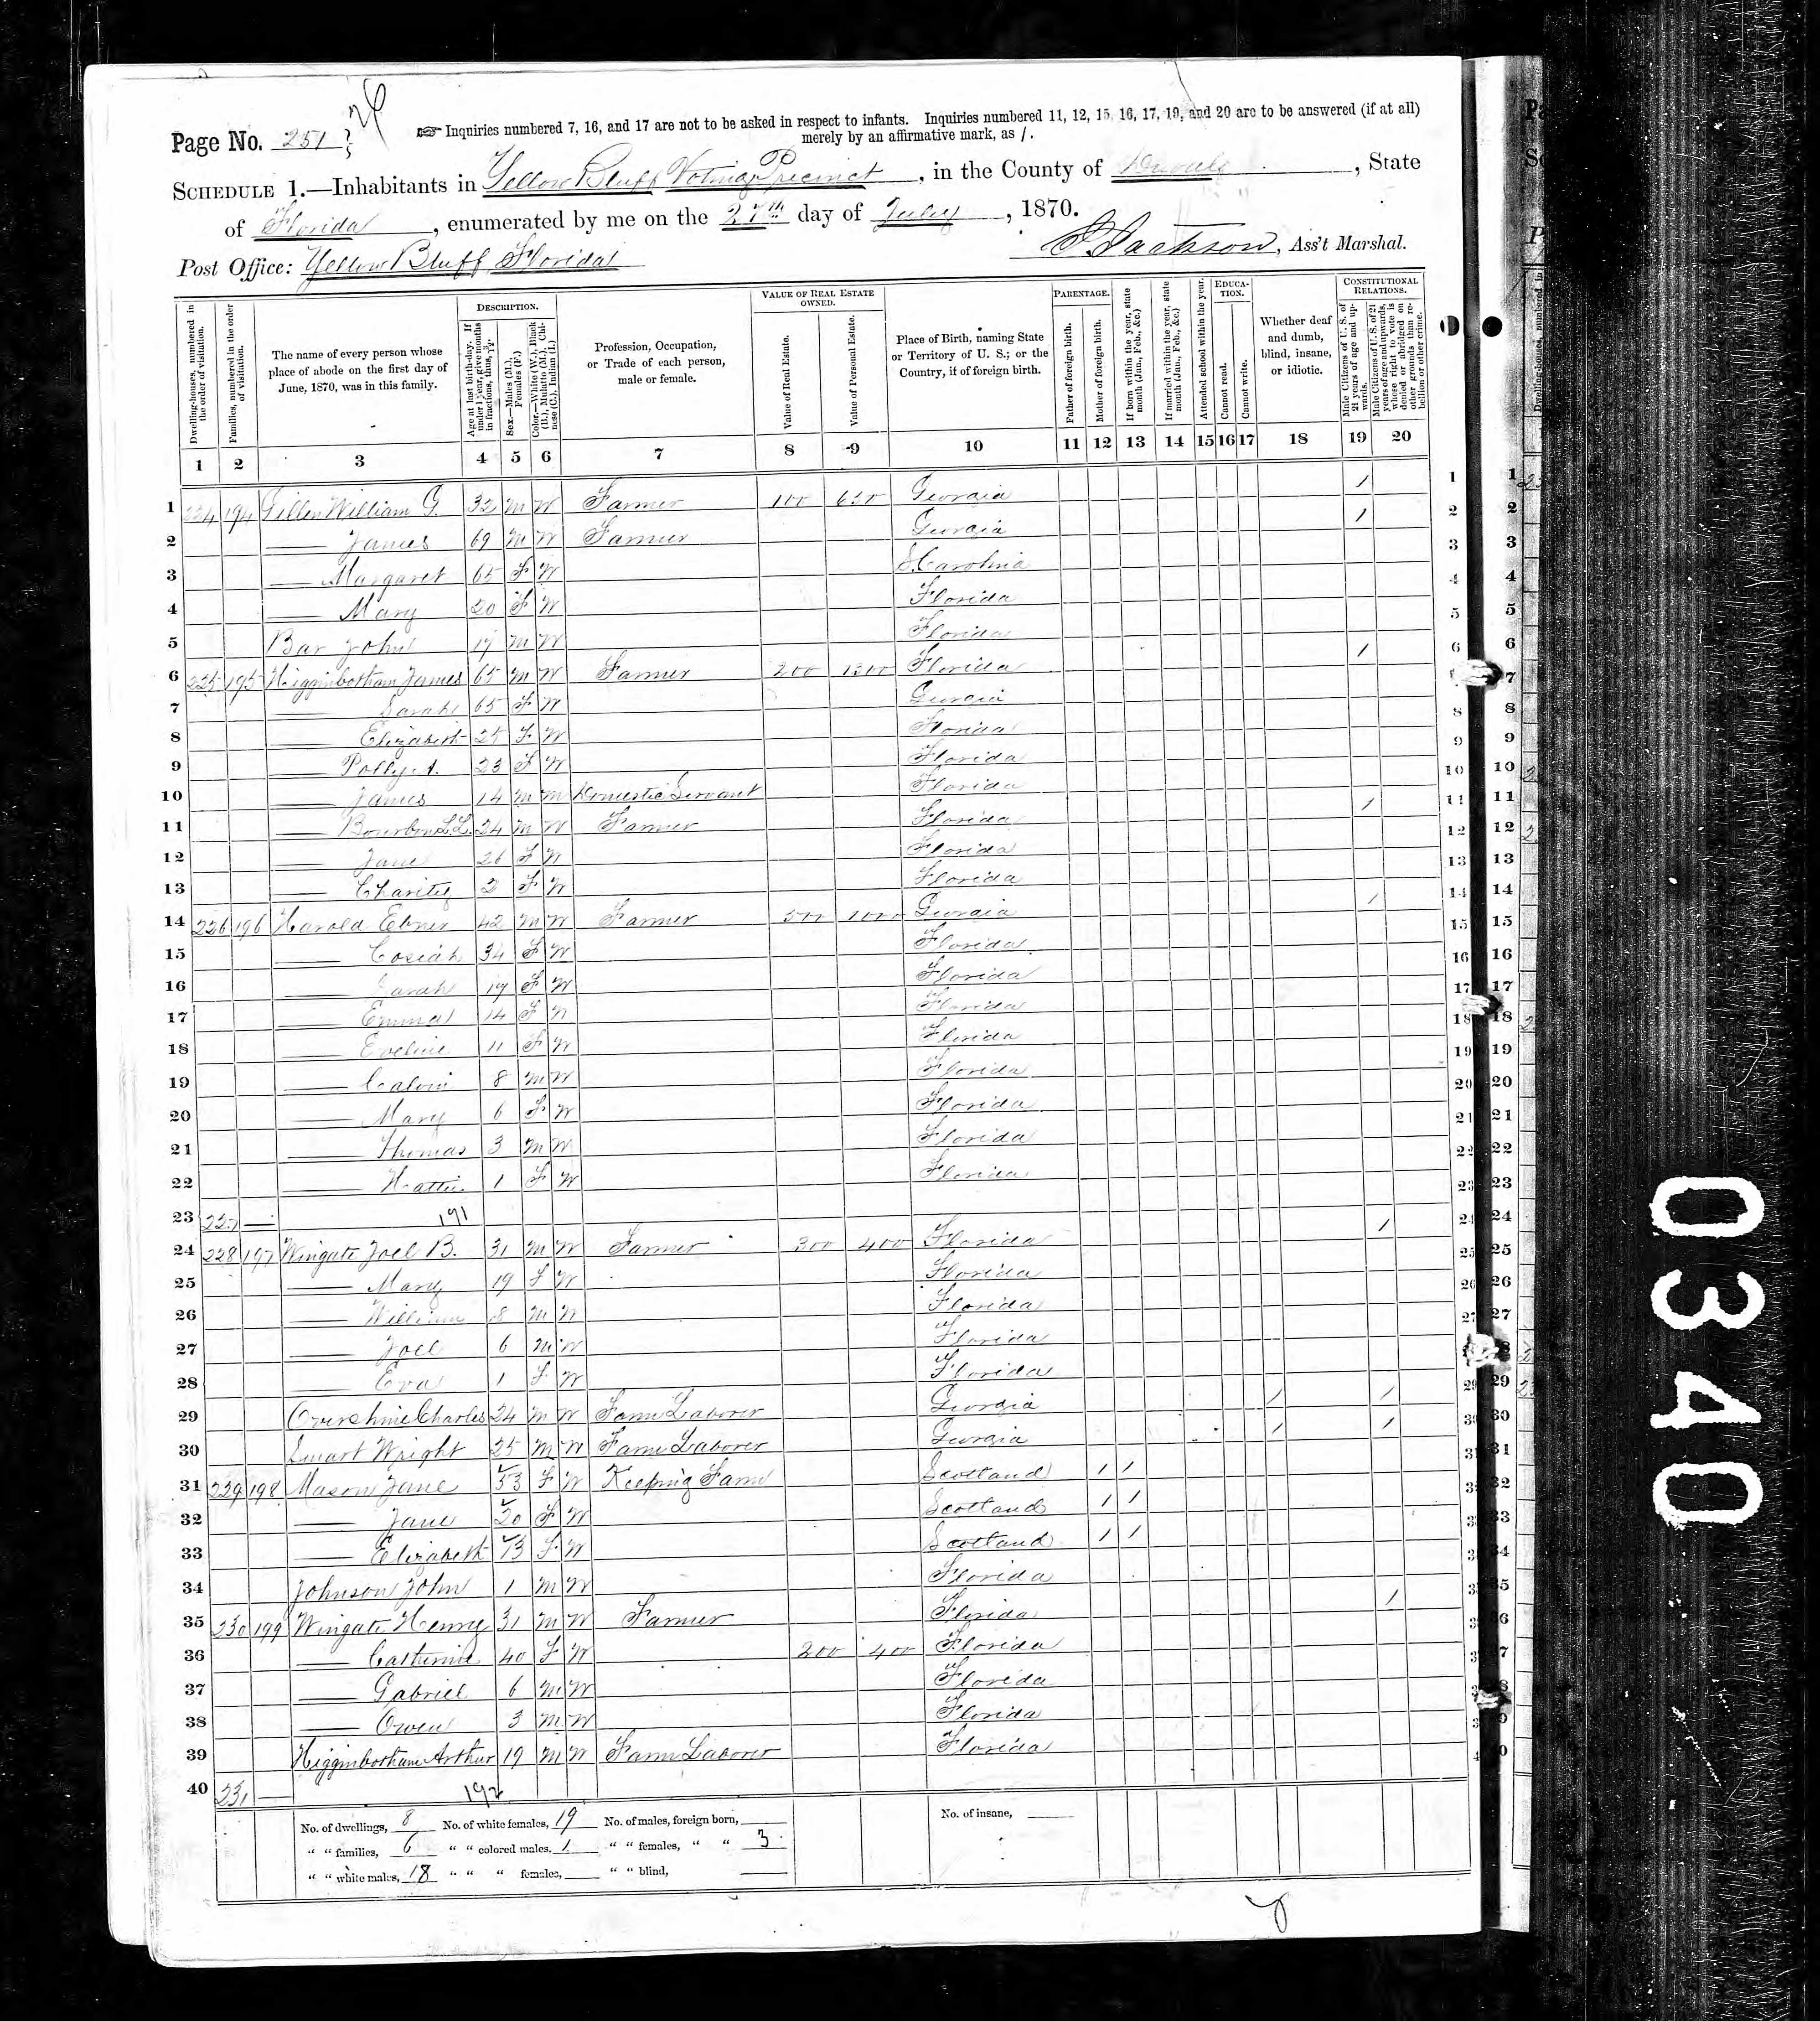 Page No. 251
☞ Inquiries numbered 7, 16, and 17 are not to be asked in respect to infants. Inquiries numbered 11, 12, 15, 16, 17, 19, and 20 are to be answered (if at all)
merely by an affirmative mark, as /.
SCHEDULE 1.—Inhabitants in Yellow Bluff Voting Precinct, in the County of Duval, State
of Florida, enumerated by me on the 27th day of July, 1870.
Post Office: Yellow Bluff Florida
Jackson, Ass't Marshal.
Dwelling-houses, numbered in the order of visitation.
Families, numbered in the order of visitation.
The name of every person whose place of abode on the first day of June, 1870, was in this family.
DESCRIPTION.
Age at last birth-day. If under 1 year, give months in fractions, thus, 3/12.
Sex.—Males (M.), Females (F.)
Color.—White (W.), Black (B.), Mulatto (M.), Chinese (C.), Indian (I.)
Profession, Occupation, or Trade of each person, male or female.
VALUE OF REAL ESTATE OWNED.
Value of Real Estate.
Value of Personal Estate.
Place of Birth, naming State or Territory of U. S.; or the Country, if of foreign birth.
PARENTAGE.
Father of foreign birth.
Mother of foreign birth.
If born within the year, state month (Jan., Feb., &c.)
If married within the year, state month (Jan., Feb., &c.)
Attended school within the year.
EDUCATION.
Cannot read.
Cannot write.
Whether deaf and dumb, blind, insane, or idiotic.
CONSTITUTIONAL RELATIONS.
Male Citizens of U. S. of 21 years of age and upwards.
Male Citizens of U. S. of 21 years of age and upwards, whose right to vote is denied or abridged on other grounds than rebellion or other crime.
1 2 3 4 5 6 7 8 9 10 11 12 13 14 15 16 17 18 19 20
1 224 194 Gillen William G. 32 M W Farmer 100 650 Georgia / 1
2 — James 69 M W Farmer Georgia / 2
3 — Margaret 65 F W S. Carolina 3
4 — Mary 20 F W Florida 4
5 Bar John 17 M W Florida 5
6 225 195 Higginbotham James 65 M W Farmer 200 1300 Florida / 6
7 — Sarah 65 F W Georgia
8 — Elizabeth 25 F W Florida 8
9 — Polly A. 23 F W Florida 9
10 — James 14 M M Domestic Servant Florida 10
11 — Bourbon L.L. 24 M W Farmer Florida / 11
12 — Jane 26 F W Florida 12
13 — Charity 2 F W Florida 13
14 226 196 Harold Ebner 42 M W Farmer 500 1000 Georgia / 14
15 — Cosiah 34 F W Florida 15
16 — Sarah 17 F W Florida 16
17 — Emma 14 F W Florida 17
18 — Eveline 11 F W Florida 18
19 — Calvin 8 M W Florida 19
20 — Mary 6 F W Florida 20
21 — Thomas 3 M W Florida 21
22 — Hattie 1 F W Florida 22
23 227 — 191 23
24 228 197 Wingate Joel B. 31 M W Farmer 300 400 Florida / 24
25 — Mary 19 F W Florida 25
26 — William 8 M W Florida 26
27 — Joel 6 M W Florida 27
28 — Eva 1 F W Florida
29 Overshine Charles 24 M W Farm Laborer Georgia / / 29
30 Smart Wright 25 M W Farm Laborer Georgia / /
31 229 198 Mason Jane 53 F W Keeping Farm Scotland / /
32 — Jane 20 F W Scotland / /
33 — Elizabeth 13 F W Scotland / /
34 Johnson John 1 M W Florida
35 230 199 Wingate Henry 31 M W Farmer Florida /
36 — Catherine 40 F W 200 400 Florida
37 — Gabriel 6 M W Florida
38 — Owen 3 M W Florida
39 Higginbotham Arthur 19 M W Farm Laborer Florida
40 231 — 192
No. of dwellings, 8 No. of white females, 19 No. of males, foreign born, No. of insane,
" " families, 6 " " colored males, 1 " " females, " " 3
" " white males, 18 " " " females, " " blind,
0340